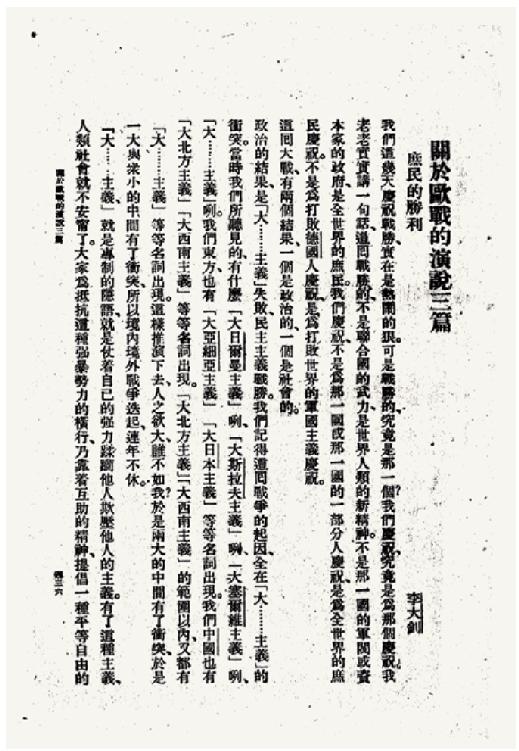 關於歐戰的演說三篇
庶民的勝利
李大釗
我們這幾天慶祝戰勝、實在是熱鬧的狠。可是戰勝的、究竟是那一個?我們慶祝、究竟是爲那個慶祝。我
老老實實講一句話、這回戰勝的、不是聯合國的武力、是世界人類的新精神。不是那一國的軍閥或資
本家的政府、是全世界的庶民。我們慶祝、不是爲那一國或那一國的一部分人慶祝、是爲全世界的庶
民慶祝。不是爲打敗德國人慶祝、是爲打敗世界的軍國主義慶祝。
這回大戰、有兩個結果、一個是政治的、一個是社會的。
政治的結果、是「大……主義」失敗、民主主義戰勝。我們記得這回戰爭的起因、全在「大……主義」的
衝突。當時我們所聽見的、有什麼「大日爾曼主義」咧、「大斯拉夫主義」咧、「大塞爾維主義」咧、
「大……主義」咧。我們東方、也有「大亞細亞主義」「大日本主義」等等名詞出現。我們中國也有
「大北方主義」「大西南主義」等等名詞出現。「大北方主義」「大西南主義」的範圍以內、又都有
「大……主義」等等名詞出現。這樣推演下去、人之欲大、誰不如我?於是兩大的中間有了衝突、於是
一大與衆小的中間有了衝突、所以境內境外戰爭迭起、連年不休。
「大……主義」就是專制的隱語、就是仗着自己的强力蹂躪他人欺壓他人的主義。有了這種主義、
人類社會就不安甯了。大家爲抵抗這種强暴勢力的橫行、乃靠着互助的精神、提倡一種平等自由的
關於歐戰的演說三篇
四三六